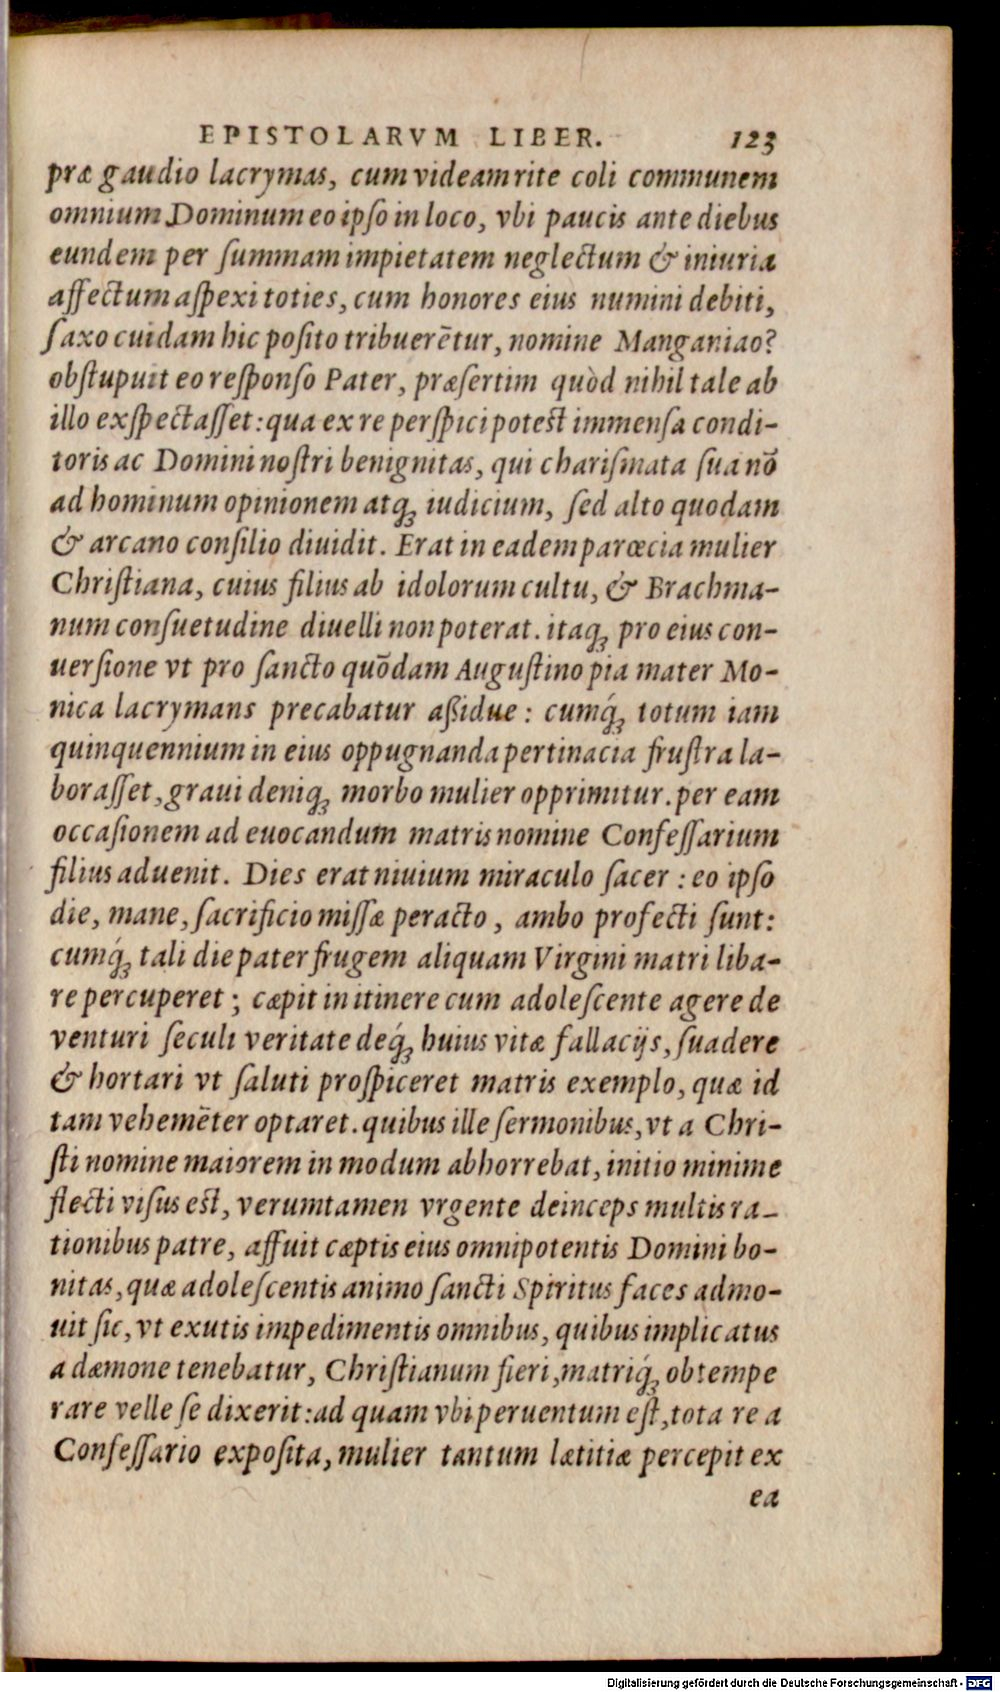 EPISTOLARVM LIBER. 123
præ gaudio lacrymas, cum videam rite coli communem
omnium Dominum eo ipſo in loco, vbi paucis ante diebus
eundem per ſummam impietatem neglectum & iniuria
affectum aſpexi toties, cum honores eius numini debiti,
ſaxo cuidam hic poſito tribuerētur, nomine Manganiao?
obſtupuit eo reſponſo Pater, præſertim quòd nihil tale ab
illo exſpectaſſet: qua ex re perſpici poteſt immenſa condi-
toris ac Domini noſtri benignitas, qui chariſmata ſua nō
ad hominum opinionem atq; iudicium, ſed alto quodam
& arcano conſilio diuidit. Erat in eadem parœcia mulier
Chriſtiana, cuius filius ab idolorum cultu, & Brachma-
num conſuetudine diuelli non poterat. itaq; pro eius con-
uerſione vt pro ſancto quōdam Auguſtino pia mater Mo-
nica lacrymans precabatur aßidue: cumq́; totum iam
quinquennium in eius oppugnanda pertinacia fruſtra la-
boraſſet, graui deniq; morbo mulier opprimitur. per eam
occaſionem ad euocandum matris nomine Confeſſarium
filius aduenit. Dies erat niuium miraculo ſacer: eo ipſo
die, mane, ſacrificio miſſæ peracto, ambo profecti ſunt:
cumq́; tali die pater frugem aliquam Virgini matri liba-
re percuperet; cæpit in itinere cum adoleſcente agere de
venturi ſeculi veritate deq́; huius vitæ fallacijs, ſuadere
& hortari vt ſaluti proſpiceret matris exemplo, quæ id
tam vehemēter optaret. quibus ille ſermonibus, vt a Chri-
ſti nomine maiorem in modum abhorrebat, initio minime
flecti viſus eſt, verumtamen vrgente deinceps multis ra-
tionibus patre, affuit cæptis eius omnipotentis Domini bo-
nitas, quæ adoleſcentis animo ſancti Spiritus faces admo-
uit ſic, vt exutis impedimentis omnibus, quibus implicatus
a dæmone tenebatur, Chriſtianum fieri, matriq́; obtempe
rare velle ſe dixerit: ad quam vbi peruentum eſt, tota re a
Confeſſario expoſita, mulier tantum lætitiæ percepit ex
ea
Digitalisierung gefördert durch die Deutsche Forschungsgemeinschaft - DFG